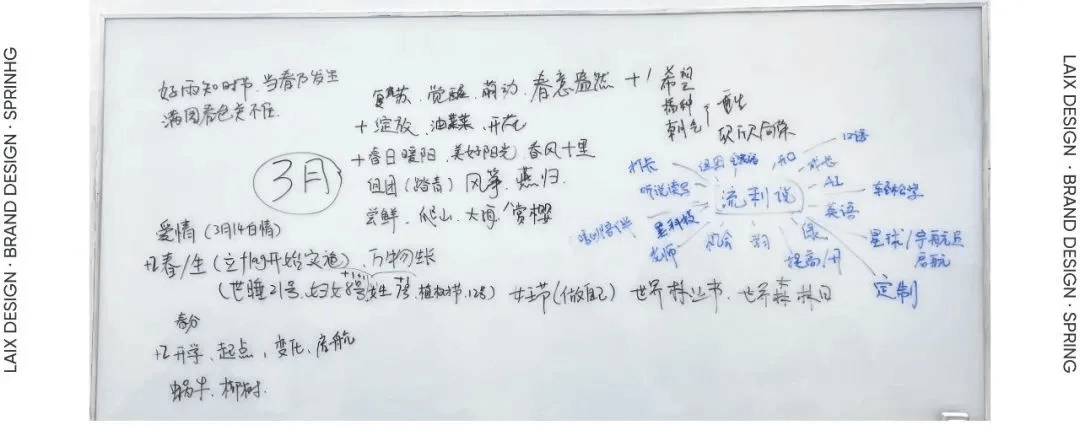 LAIX DESIGN · BRAND DESIGN · SPRINHG
好雨知时节,当春乃发生
满园春色关不住
复苏、觉醒、萌动、春意盎然 + 希望
播种
朝气
再生
欣欣向荣
+ 绽放、油菜菜、开花
+ 春日暖阳、美好阳光、春风十里
组团(踏青)风筝、燕归.
尝鲜、爬山、大海、赏樱
3月
爱情(3月14白情)
+2春/生(立flag开始实施)、万物生长
(世睡21号、妇女8号、女生7号、植树节、12号)女王节(做自己)
春分
+2开学、起点、变化、启航
蜗牛、柳树.
流利说
打卡
听说读写
黑科技
老师
机会
绿
提高/升
定制
星球/导航员
启航
英语
AI
成长
口语
LAIX DESIGN · BRAND DESIGN · SPRING